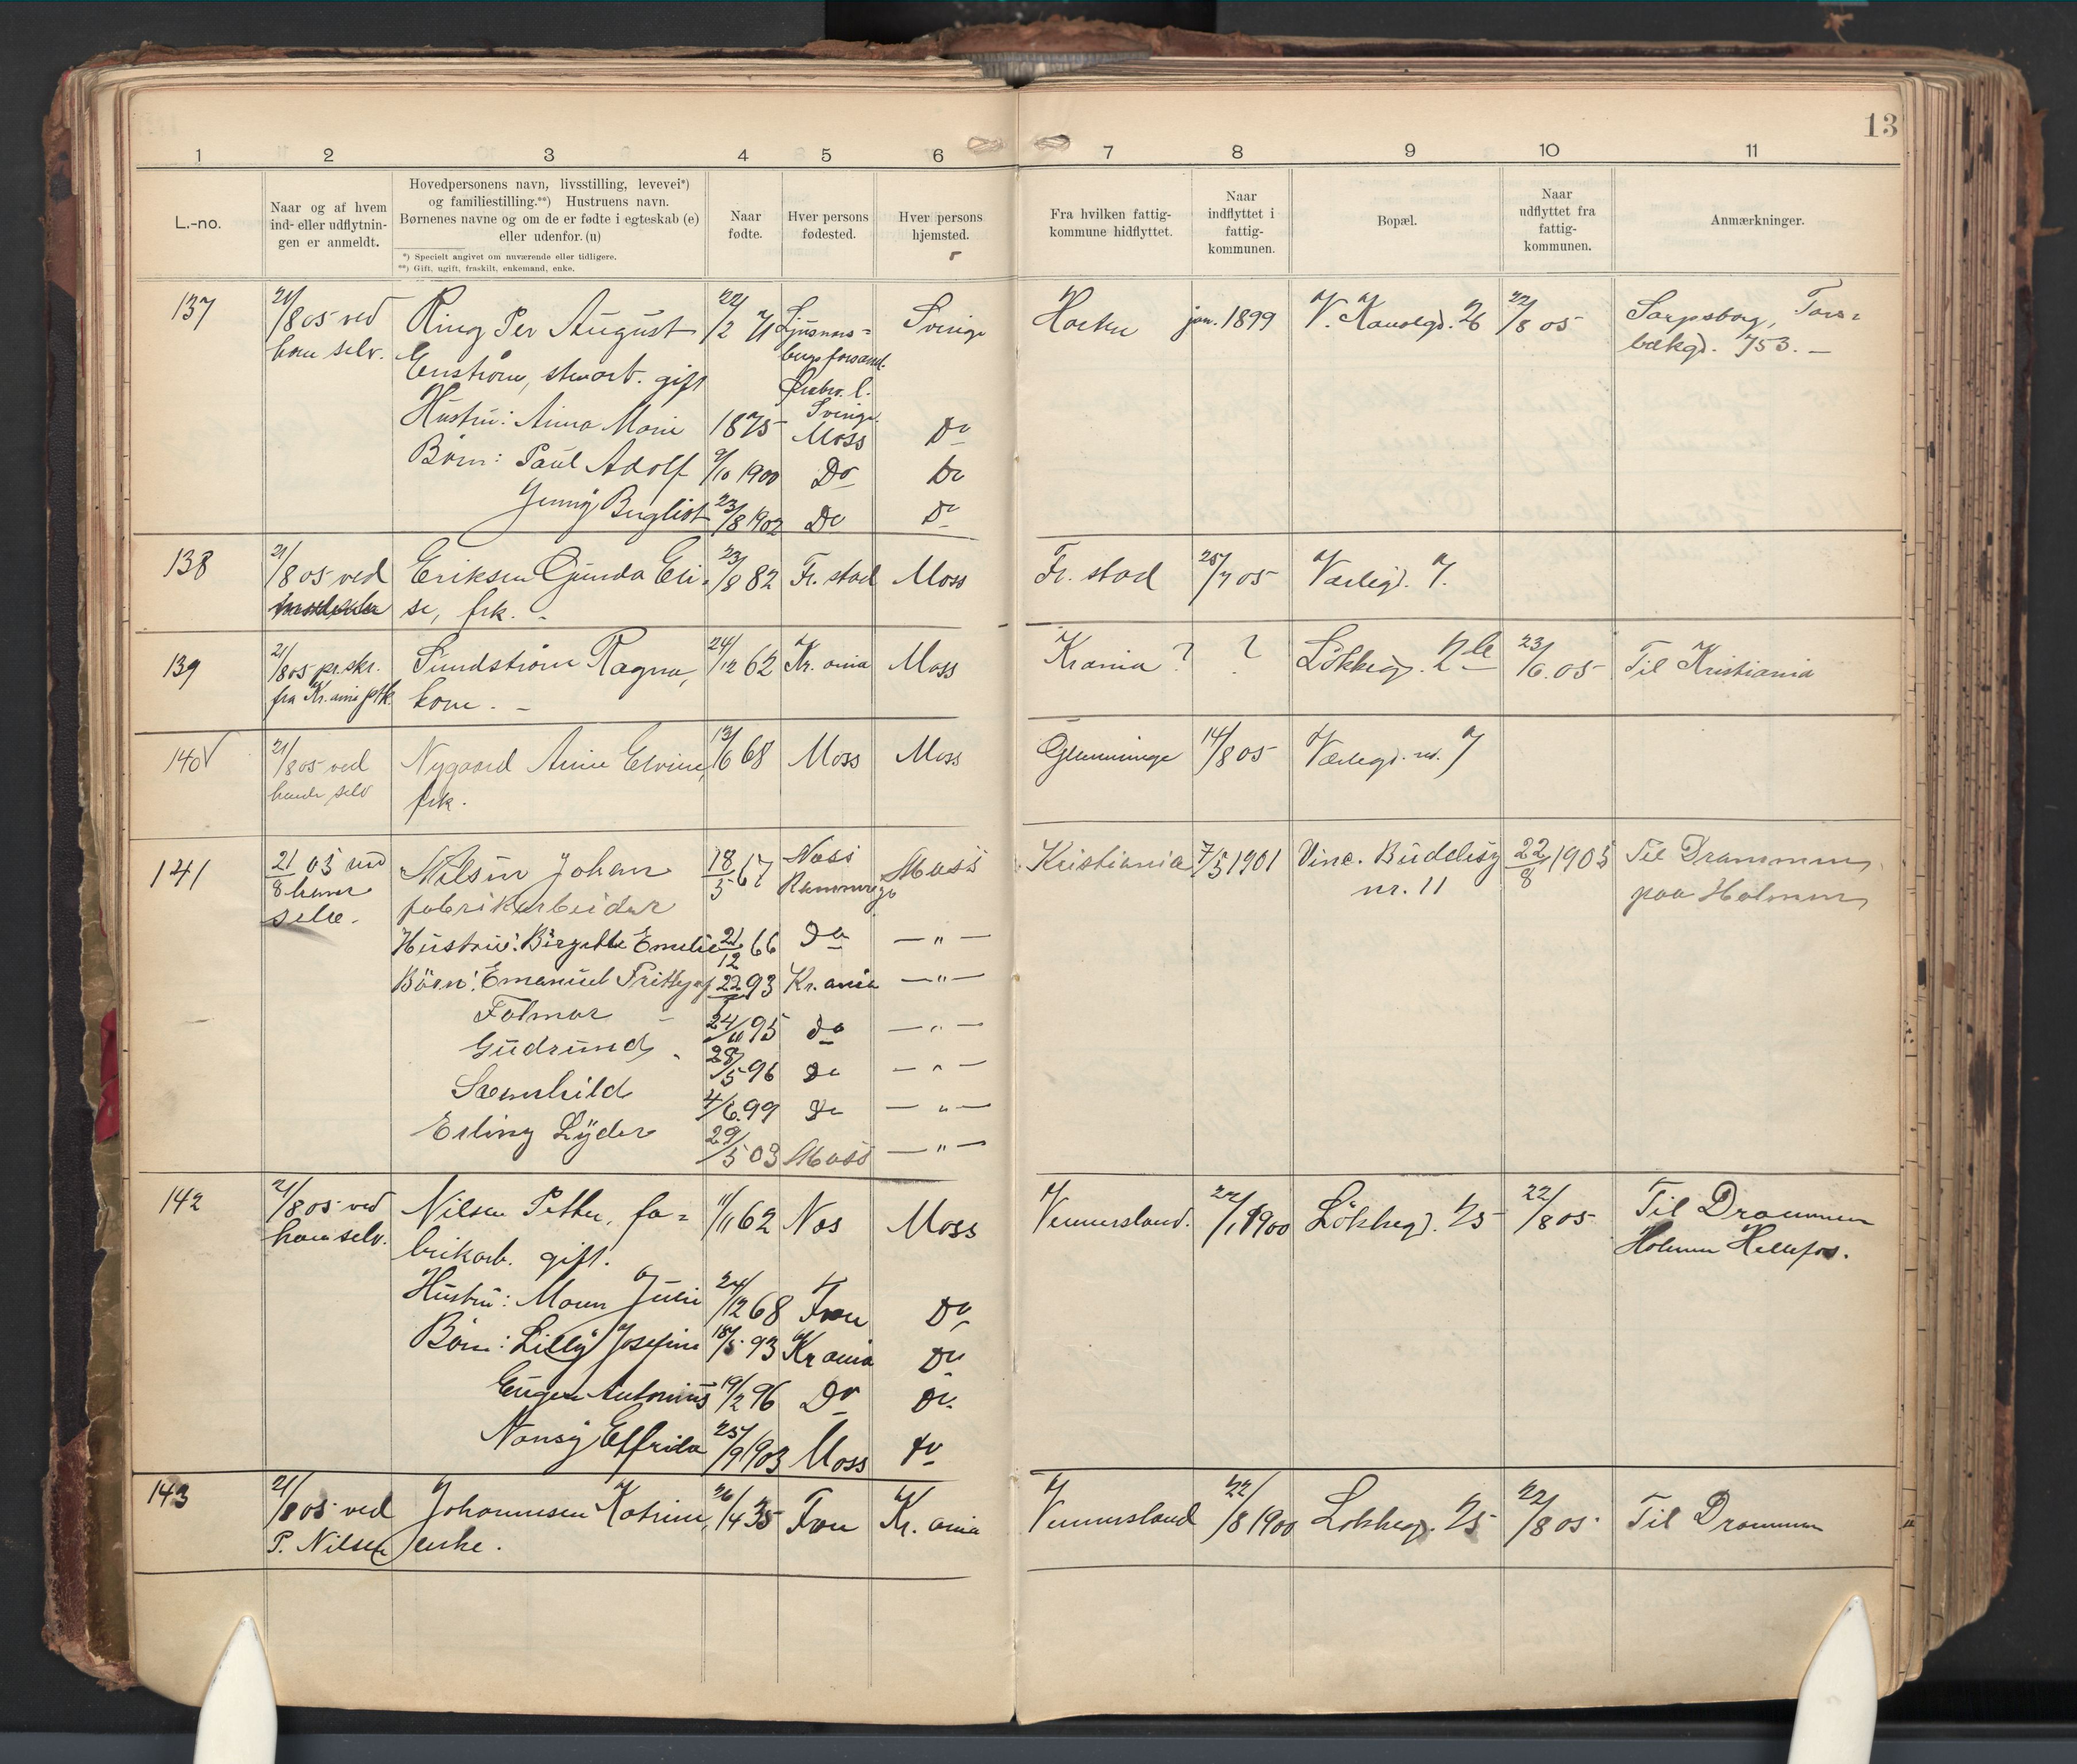 13
1 2 3 4 5 6 7 8 9 10 11
L.-no.
Naar og af hvem
ind- eller udflytnin-
gen er anmeldt.
Hovedpersonens navn, livsstilling, levevei*)
og familiestilling.**) Hustruens navn.
Børnenes navne og om de er fødte i egteskab (e)
eller udenfor. (u)
*) Specielt angivet om nuværende eller tidligere.
**) Gift, ugift, fraskilt, enkemand, enke.
Naar
fødte.
Hver persons
fødested.
Hver persons
hjemsted.
Fra hvilken fattig-
kommune hidflyttet.
Naar
indflyttet i
fattig-
kommunen.
Bopæl.
Naar
udflyttet fra
fattig-
kommunen.
Anmærkninger.
137 21/8 05 ved Ring Per August 22/2 71 Ljusnars= Sverige jan. 1899 V. Kanalgd. 26 22/8 05 Sarpsborg, Tars=
ham selv. Enström, st. arb. gift Örebro l. bækgd. 753. –
Sverige
Hustru: Anna Marie 1875 Moss Do
Børn: Paul Adolf 9/10 1900 Do Do
Jenny 23/8 1902 Do Do
138 21/8 05 ved Eriksen Gunda Eli= 23/8 82 Fr. stad Moss Fr. stad 25/7 05 Værlegd. 7.
se, frk. –
139 21/8 05 pr. skr. Sundström Ragna, 24/12 62 Kr. ania Moss Krania ? ? Lökkegd. 23/6. 05 Til Kristiania
fra Kr. ania kone. –
140 √ 21/8 05 ved Nygaard Anne Elvine, 13/6 68 Moss Moss Glemminge 14/8 05 Værlegd. nr. 7
hende selv frk.
141 21/8 05 ved Nilsen Johan 18/5 67 Næss Moss Kristiania 7/5 1901 Vinc. Buddesg 22/8 1905 Til Drammen
ham fabrikarbeider nr. 11 paa Holmen
selv.
Hustru: Birgitte Emelie 21/12 66 Do — " —
Börn: Emanuel Frithjof 93 Kr. ania — " —
Folmar 95 do — " —
Gudrund 28/5 96 do — " —
4/6 99 do — " —
Erling Lyder 29/5 03 Moss — " —
142 21/8 05 ved Nilsen Petter, fa= 11/11 62 Nes Moss Vennersland. 1900 Lökkegd. 25 22/8 05 Til Drammen
ham selv. brikarb. gift. Holmen Hellefos.
Hustru: Maren Julie 24/12 68 Do
Børn: Lilly Josefine 18/5 93 Krania Do
Eugen Antonius 19/2 96 Do Do
Nansy Elfrida 25/9 1903 Moss Do
143 21/8 05 ved Johannesen Katrine, 26/4 35 Kr. ania Vennersland 22/8 1900 Lökkegd. 25 22/8 05 Til Drammen
P. Nilsen enke.